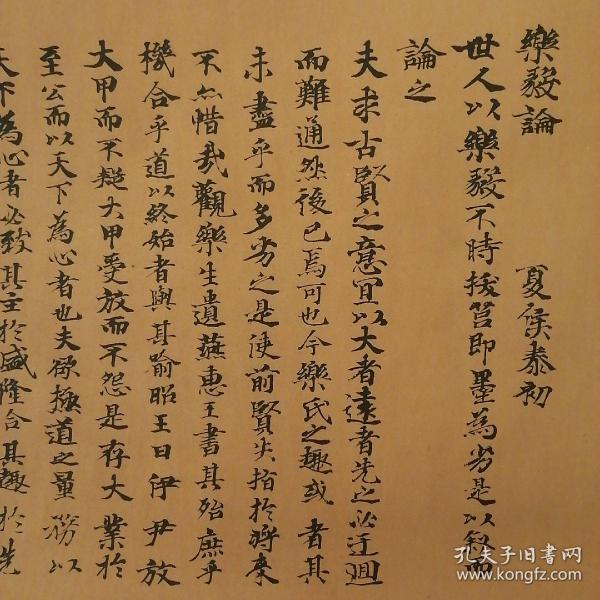 樂毅論 夏侯泰初
世人以樂毅不時拔莒即墨為劣是以叙而
論之
夫求古賢之意宜以大者遠者先之必迂迴
而難通然後已焉可也今樂氏之趣或者其
未盡乎而多劣之是使前賢失指於將來
不亦惜哉觀樂生遺燕惠王書其殆庶乎
機合乎道以終始者與其喻昭王曰伊尹放
大甲而不疑大甲受放而不怨是存大業於
至公而以天下為心者也夫欲極道之量務以
天下為心者必致其主於盛隆合其趣於先
孔夫子旧书网
www.kongfz.com